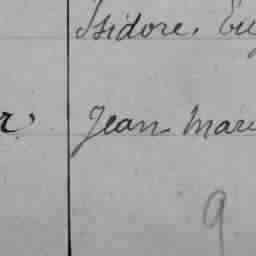 Isidore, Eu
r Jean Marie
9